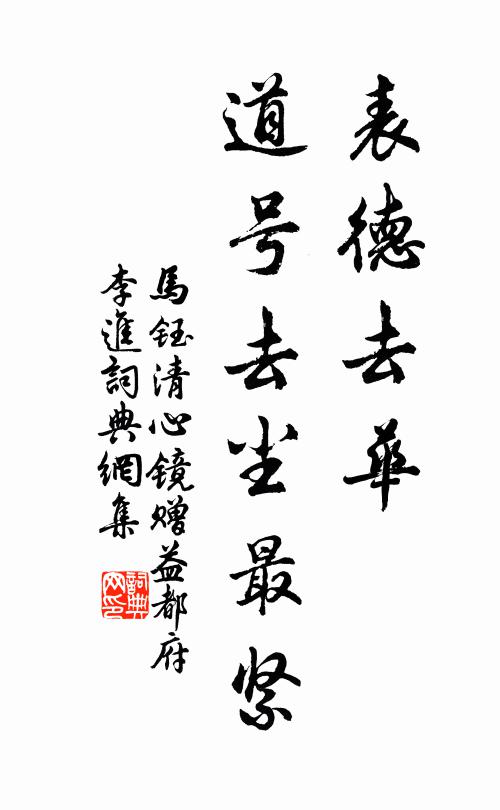 表德去华
道号去尘最紧
馬钰清心镜赠益都府
李進詞典網集
詞典
网印